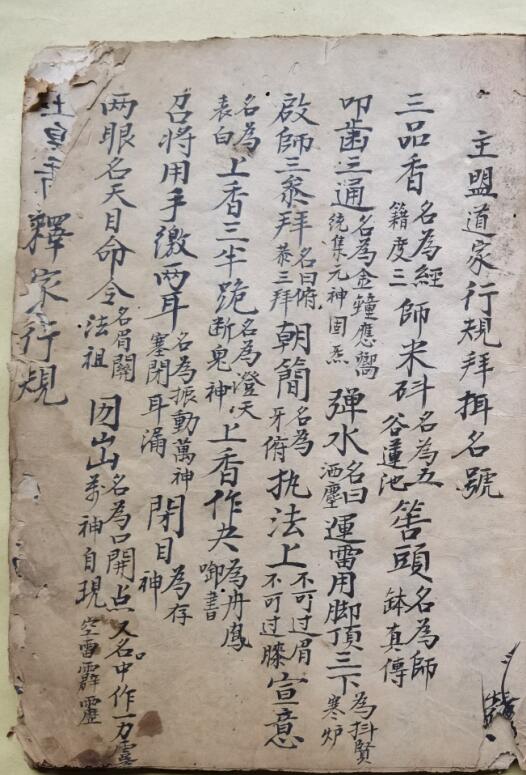 主盟道家行規拜揖名號
三品香名為經籍度三師米科名為五谷蓮池筶頭名為師鉢真傳
叩齒三通名為金鐘應嚮統集元神固炁弹水名曰洒塵運雷用脚頂三下為抖賢寒炉
啟師三叅拜名曰俯恭三拜朝簡名為牙俯执法上不可过眉不可过膝宣意
名為表白上香三半跪名為澄天断鬼神上香作夬為丹鳳啣書
召将用手繳两耳名為振動萬神塞閉耳漏閉目為存神
两眼名天目命令名眉關法祖因山山名為口開点又名中作一力雷万神自現空雷霹靂
釋家行規